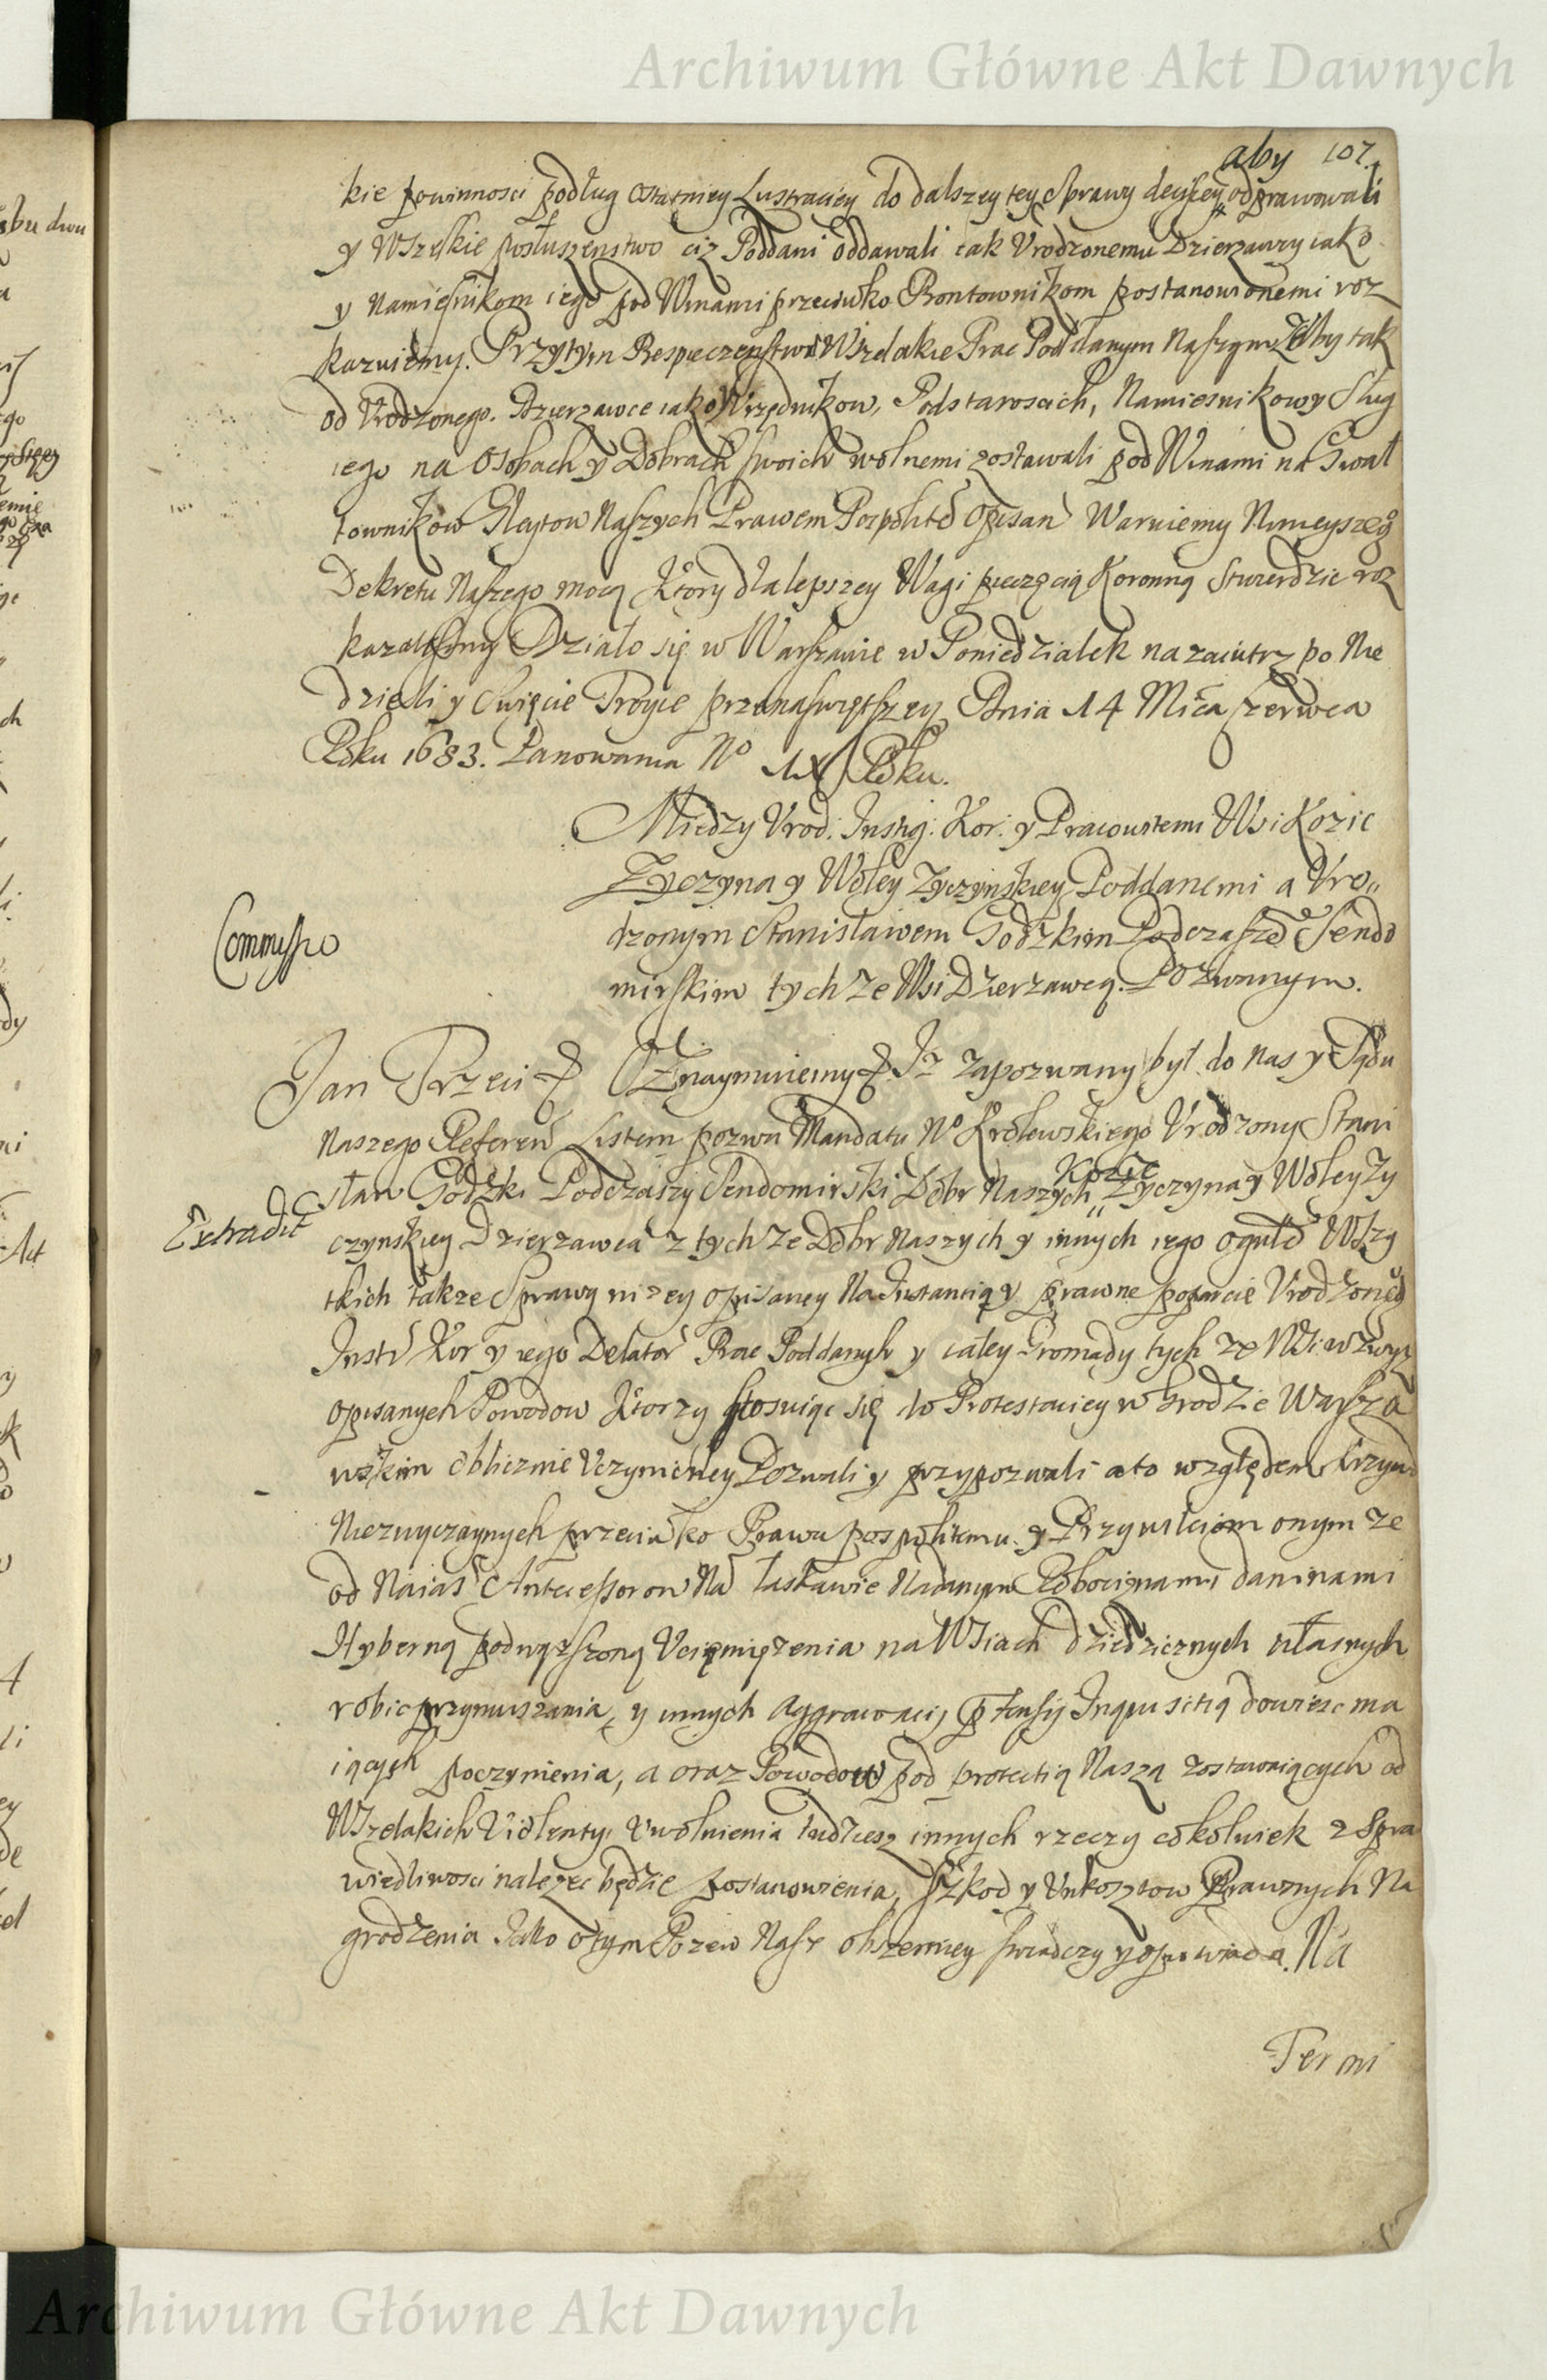 Archiwum Główne Akt Dawnych
aby 107.
kie powinnosci podług ostatniey Lustraciey do dalszey tey sprawy decysey odprawowali
y Wszyskie posłuszenstwo ciż Poddani oddawali iak Vrodzonemu Dzierzawcy iako
y Namiesnikom iego pod Winami przeciwko Bontownikom postanowionemi roz
kazuiemy. Przytym Bespieczenstwo Wszelakie Prac Poddanym Naszym Zeby tak
od Vrodzonego Dzierzawce iako Vrzędnikow, Podstaroscich, Namiesnikow y Sług
iego na osobach y Dobrach swoich wolnemi zostawali pod Winami na Gwał
townikow Glejtow Naszych Prawem Pospolite opisan Waruiemy Ninieyszego
Dekretu Naszego mocą Ktory dla lepszey Wagi pieczęcią Koronną stwierdzic roz
kazalismy Działo się w Warszawie w Poniedziałek nazaiutrz po Nie
dzieli y Swięcie Troyce przenaswiętszey Dnia 14 Mca Czerwca
Roku 1683. Panowania No IX Roku.
Miedzy Vrod: Instig: Kor: y Pracowitemi Wsi Kozic
Zyczyna y Woley Zyczynskiey Poddanemi a Vro„
dzonym Stanisławem Godzkim Podczasze Sendo
mirskim tychze Wsi Dzierzawcą Pozwanym.
Commissio
Jan Trzeci & Oznaymuiemy &. Iz zapozwany był do nas y Sądu
Naszego Referen Listem pozwu Mandatu No Krolewskiego Vrodzony Stani
Kozic
sław Godzki Podczaszy Sendomirski Dobr Naszych „ Zyczyna y Woley Zy
Extradit
czynskiey Dzierzawca z tychze Dobr Naszych y innych iego ogułe Wszy
tkich takze sprawy nizey opisaney Na Instantią y prawne poparcie Vrodzone
Inst Kor y iego Delator Prac Poddanych y całey Gromady tych ze Wsi wzwyz
opisanych Powodow Ktorzy stosuiąc się do Protestaciey w Grodzie Warsza
wskim oblicznie Vczynioney Pozwali y przypozwali a to względem krzywd
Niezwyczaynych przeciwko Prawu pospolitemu y Przywileiom onym ze
od Naias Antecessorow Na łaskawie Nadanym Robociznami daninami
Hyberną podwyzszoną Vciemiężenia na Wsiach dziedzicznych własnych
robic przymuszania, y innych aggrawacij Inquisitią dowiesc ma
iących poczynienia, a oraz Powodow pod protectią Naszą zostawaiących od
Wszelakich Violenty, Vwolnienia tudziesz innych rzeczy cokolwiek z Spra
wiedliwosci nalezec będzie postanowienia, szkod y Vnkosztow Prawnych Na
grodzenia Jako o tym Pozew Nasz obszerniey swiadczy y opowiada. Na
Termi
Archiwum Główne Akt Dawnych